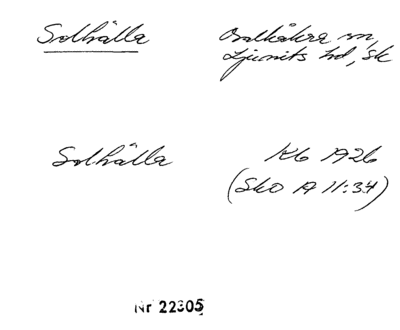 Solhälla
Balkåkra sn,
Ljunits hd, Sk
Solhälla
Kb 1926
(SkO A 11:34)
Nr 22305